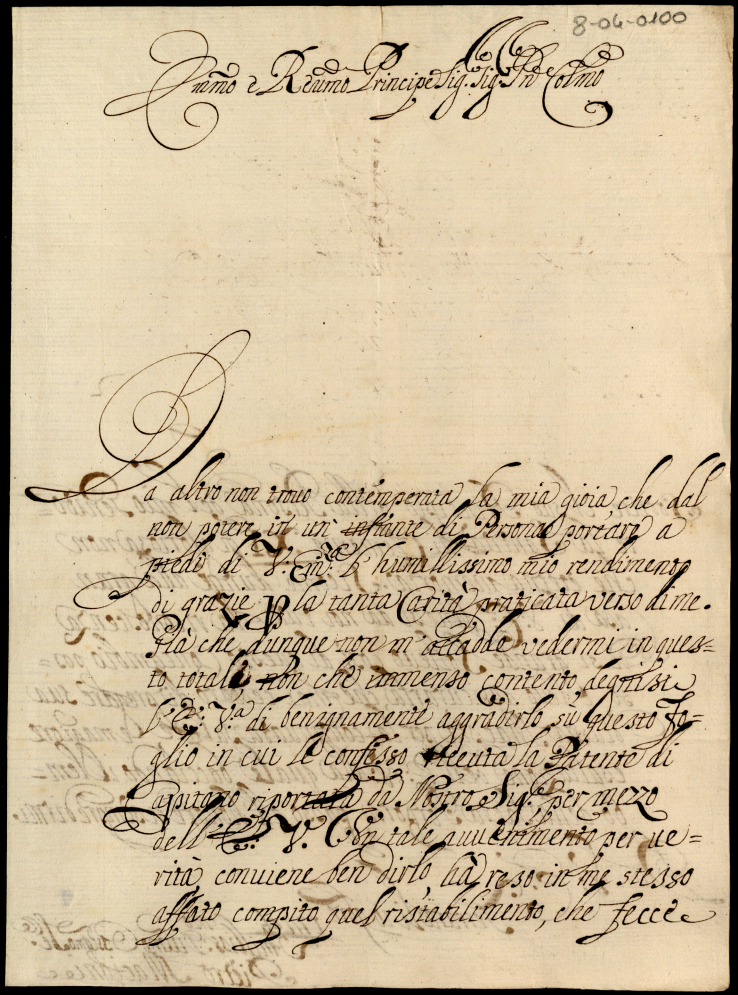 8-04-0100
Em̃mo e Reūmo Principe Sig. Sig. Pñe Colmo
Da altro non trovo contemperata la mia gioia, che dal
non potere in un' instante di Persona portare a
piedi di V. Em.ª l' humilissimo mio rendimento
di grazie p la tanta Carità praticata verso di me.
Già che dunque non m' accadde vedermi in ques=
to totale, non che immenso contento, degnisi
l' E. V.ª di benignamente aggradirlo sù questo fo=
glio in cui le confesso riceuta la Patente di
Capitano riportata da Nostro Sig.re per mezzo
dell' E. V. Con tale avvenimento per ve=
rità conviene ben dirlo, hà reso in me stesso
affato compito quel ristabilimento, che fecce